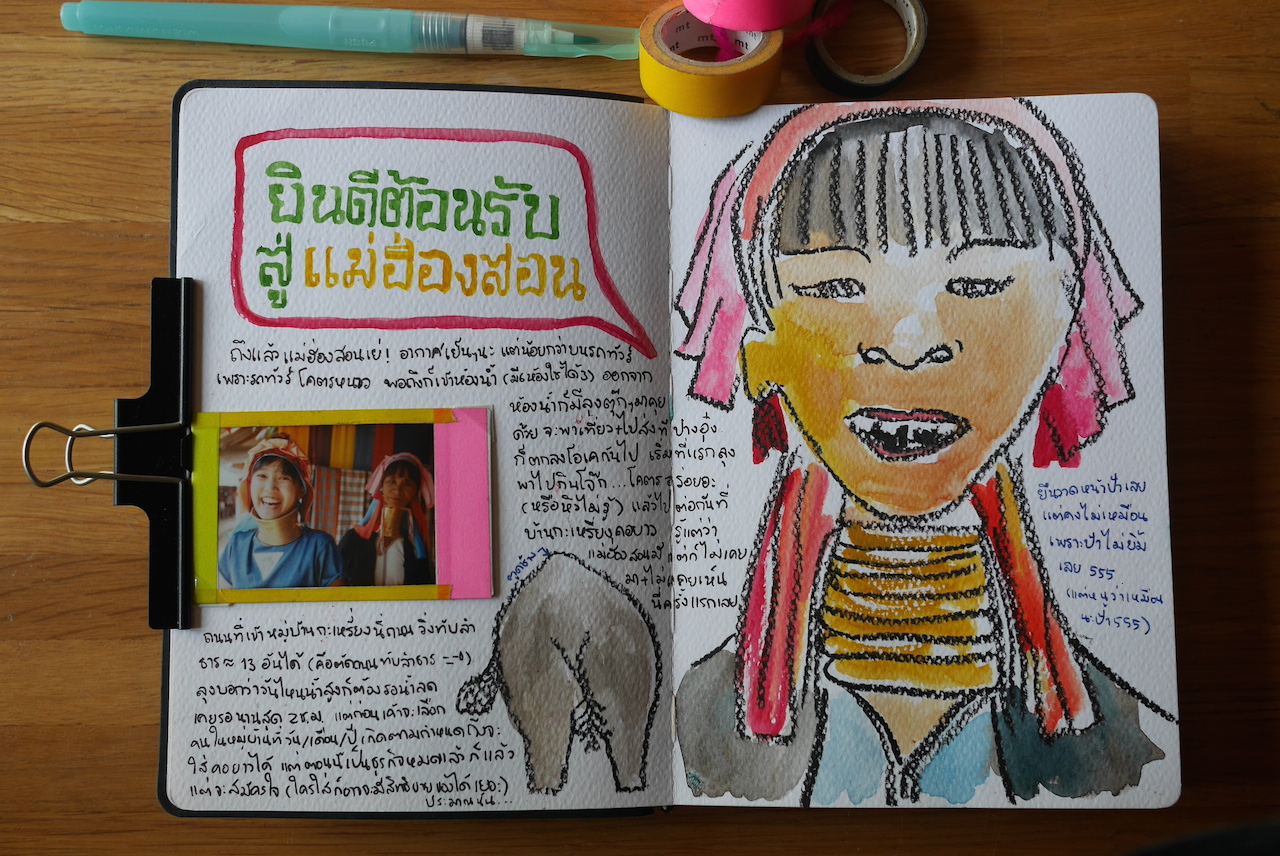 mt
mt
ยินดีต้อนรับ
สู่ แม่ฮ่องสอน
ถึงแล้วแม่ฮ่องสอนเย่! อากาศเย็นๆนะ แต่น้อยกว่าบนรถทัวร์
เพราะรถทัวร์ โคตรหนาว พอถึงก็เข้าห้องน้ำ (มีแห้งใช้ได้ริ) ออกจาก
ห้องน้ำก็มีลุงตุ๊กๆมาคุย
ด้วย จะพาเที่ยว+ไปส่งที่ปางอุ๋ง
ก็ตกลงโอเคกันไป เริ่มที่แรกลุง
พาไปกินโจ๊ก...โคตรอร่อยอะ
(หรือหิวไม่รู้) แล้วไปต่อกันที่
บ้านกะเหรี่ยงคอยาว รู้แต่ว่า
แม่ฮ่องสอนมี แต่ก็ไม่เคย
มา+ไม่เคยเห็น
นี่ครั้งแรกเลย
ถนนที่เข้าหมู่บ้านกะเหรี่ยงนี่ถนนวิ่งทับลำ
ธาร ≈ 13 อันได้ (คือตัดถนนทับลำธาร =_=")
ลุงบอกว่าวันไหนน้ำสูงก็ต้องรอน้ำลด
เคยรอนานสุด 2 ช.ม. แต่ก่อนเค้าจะเลือก
คนในหมู่บ้านที่วัน/เดือน/ปี เกิดตามกำหนดถึงจะ
ใส่คอยาวได้ แต่ตอนนี้เป็นธุรกิจหมดแล้ว ก็แล้ว
แต่จะสมัครใจ (ใครใส่ก็อาจจะมีสิทธิขายของได้เยอะ)
ประมาณนั้น...
ยืนวาดหน้าป้าเลย
แต่คงไม่เหมือน
เพราะป้าไม่ยิ้ม
เลย 555
(แต่หนูว่าเหมือน
นะป้า 555)